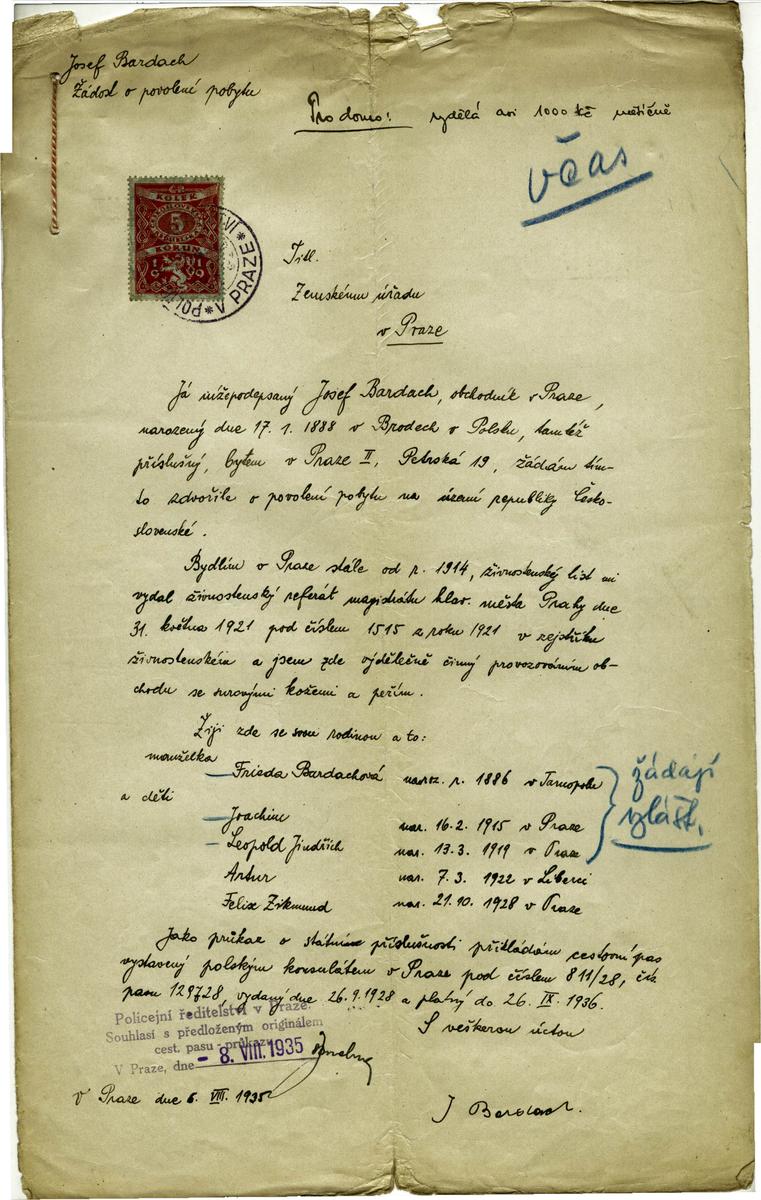 Josef Bardach
Žádost o povolení pobytu
Pro domo! vydělá asi 1000 Kč měsíčně
včas
KOLEK
5
KORUN
V PRAZE
Titl.
Zemskému úřadu
v Praze
Já nížepodepsaný Josef Bardach, obchodník v Praze,
narozený dne 17. 1. 1888 v Brodech v Polsku, tamtéž
příslušný, bytem v Praze II, Petrská 19, žádám tím-
to zdvořile o povolení pobytu na území republiky Česko-
slovenské.
Bydlím v Praze stále od r. 1914, živnostenský list mi
vydal živnostenský referát magistrátu hlav. města Prahy dne
31. května 1921 pod číslem 1515 z roku 1921 v rejstříku
živnostenském a jsem zde výdělečně činný provozováním ob-
chodu se surovými kožemi a peřím.
Žiji zde se svou rodinou a to:
manželka
Frieda Bardachová naroz. r. 1886 v Tarnopolu
a děti
Joachim nar. 16. 2. 1915 v Praze
Leopold Jindřich nar. 13. 3. 1919 v Praze
žádají
vzlášť.
Artur nar. 7. 3. 1922 v Liberci
Felix Zikmund nar. 21. 10. 1928 v Praze
Jako průkaz o státní příslušnosti přikládám cestovní pas
vystavený polským konsulátem v Praze pod číslem 811/28, čís.
pasu 129728, vydaný dne 26. 9. 1928 a platný do 26. IX. 1936.
S veškerou úctou
Policejní ředitelství v Praze.
Souhlasí s předloženým originálem
cest. pasu - průkazu
V Praze, dne - 8. VIII. 1935
V Praze dne 6. VIII. 1935
J Bardach.